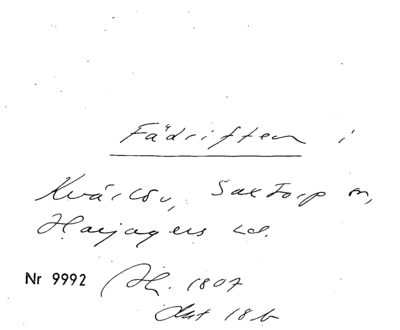 Fädriften i
Kvärlöv, Saxtorp sn,
Harjagers hd.
Nr 9992 Ak. 1807
dat 18b